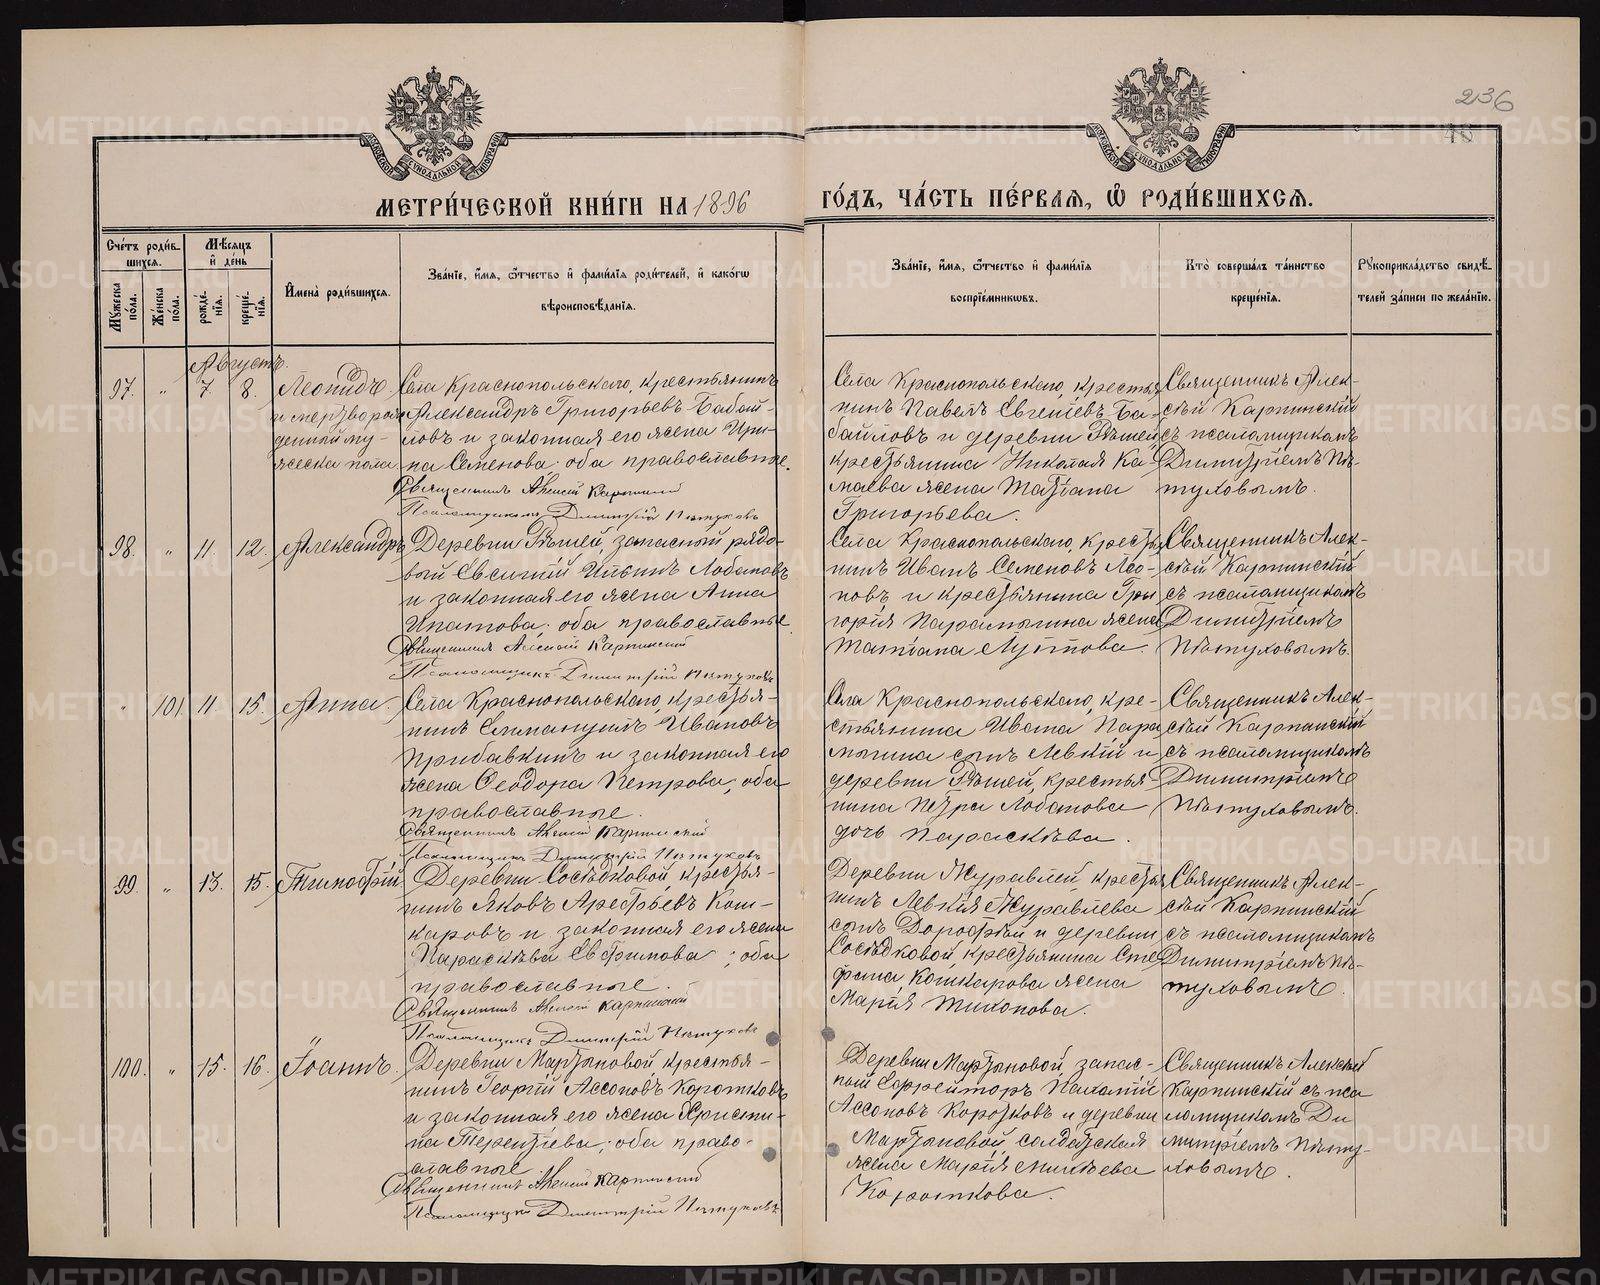 236
МОСКОВСКОЙ СѴНОДАЛЬНОЙ ТИПОГРАФІИ
МОСКОВСКОЙ СѴНОДАЛЬНОЙ ТИПОГРАФІИ
МЕТРИ́ЧЕСКОЙ КНИ́ГИ НА 1896
ГО́ДЪ, ЧА́СТЬ ПЕ́РВАѦ, Ѿ РОДИ́ВШИХСѦ.
Сче́тъ роди́в-
шихся.
Мѣ́сяцъ
и҆ де́нь
Му́жеска по́ла.
Же́нска по́ла.
рожде́нїѧ.
креще́нїѧ.
И҆мена̀ роди́вшихсѧ.
Зва́нїе, и҆́мѧ, ѻ҆́тчество и҆ фами́лїѧ роди́телей, и҆ како́гѡ
вѣроисповѣ́данїѧ.
Зва́нїе, и҆́мѧ, ѻ҆́тчество и҆ фами́лїѧ
воспрїе́мникѡвъ.
Кто̀ соверша́лъ та́инство
креще́нїѧ.
Рꙋкоприкла́дство свидѣ́-
телей за́писи по жела́нїю.
Августъ.
97. " 7. 8. Леонидъ
и мертворож
денный му-
жеска пола
Села Краснопольскаго, крестьянинъ
Александръ Григорьевъ Бабай-
ловъ и законная его жена Ири-
на Семенова; оба православные.
Священникъ Алексій Карпинский
Псаломщикъ Димитрій Пѣтуховъ
Села Краснопольскаго, крестья
нинъ Павелъ Евгеніевъ Ба-
байловъ и деревни Рѣшей
крестьянина Николая Ка-
маева жена Татіана
Григорьева.
Священникъ Алек-
сѣй Карпинскій
съ псаломщикомъ
Димитріемъ Пѣ-
туховымъ.
98. " 11. 12. Александръ
Деревни Рѣшей, запасный рядо-
вый Евсигній Ильинъ Лобановъ
и законная его жена Анна
Ипатова; оба православные
Священникъ Алексій Карпинский
Псаломщикъ Димитрій Пѣтуховъ
Села Краснопольскаго, крестья
нинъ Иванъ Семеновъ Лео-
новъ и крестьянина Гри
горія Парамыгина жена
Татіана
Священникъ Алек-
сѣй Карпинскій
съ псаломщикомъ
Димитріемъ
Пѣтуховымъ.
" 101 11. 15. Анна.
Села Краснопольскаго, крестья-
нинъ Еммануилъ Ивановъ
Прибавкинъ и законная его
жена Ѳеодора Петрова; оба
православные.
Священникъ Алексій Карпинский
Псаломщикъ Димитрій Пѣтуховъ
Села Краснопольскаго, кре-
стьянина Ивана Пара
мыгина сынъ Левкій и
деревни Рѣшей, крестья
нина Петра Лобанова
дочь Параскева.
Священникъ Алек-
сѣй Карпинскій
съ псаломщикомъ
Димитріемъ
Пѣтуховымъ.
99. " 13. 15. Тимофѣй
Деревни Сосѣдковой, крестья-
нинъ Яковъ Арефьевъ Кош-
каровъ и законная его жена
Параскева Евфимова; оба
православные.
Священникъ Алексій Карпинский
Псаломщикъ Димитрій Пѣтуховъ
Деревни Журавлей, крестья
нинъ Левкія Журавлева
сынъ Дорофѣй и деревни
Сосѣдковой, крестьянина Сте
фана Кошкарова жена
Марія Тихонова.
Священникъ Алек-
сѣй Карпинскій
съ псаломщикомъ
Димитріемъ Пѣ-
туховымъ.
100. " 15. 16. Іоаннъ.
Деревни Мартьяновой, крестья-
нинъ Георгій Ассоновъ Коротковъ
и законная его жена Христи-
на Терентіева; оба право-
славные.
Священникъ Алексій Карпинский
Псаломщикъ Димитрій Пѣтуховъ
Деревни Мартьяновой, запас-
ный Ефрейторъ Палатій
Ассоновъ Коротковъ и деревни
Мартьяновой, солдатская
жена Марія Михѣева
Короткова.
Священникъ Алексѣй
Карпинскій съ пса
ломщикомъ Ди
митріемъ Пѣту-
ховымъ.
METRIKI.GASO-URAL.RU